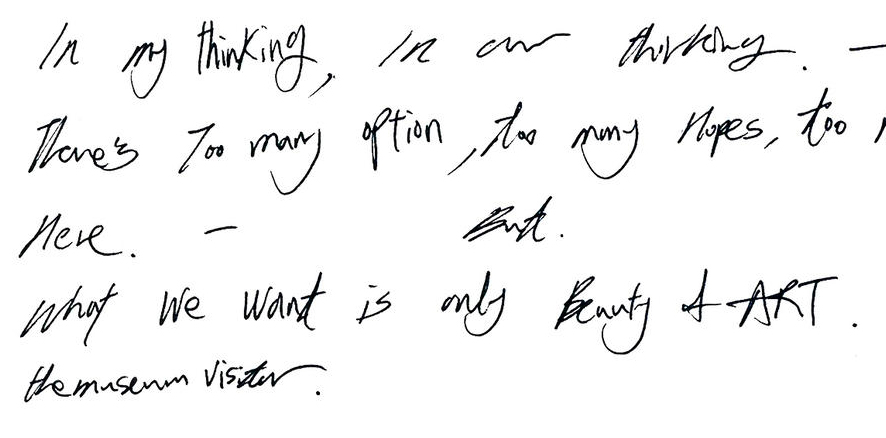 In my thinking, In our thinking. —
There's Too many option, too many Hopes, too
Here. — But.
What We Want is only Beauty & ART.
the museum visitor.